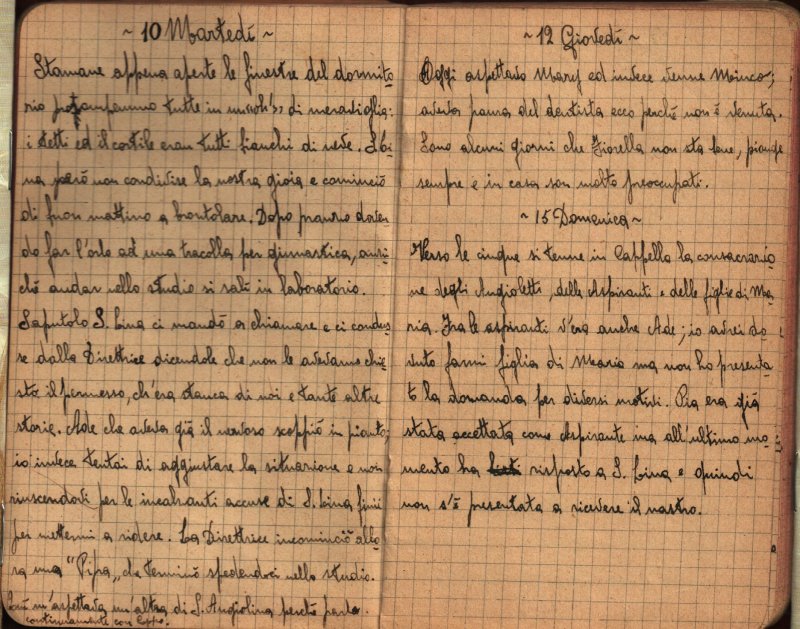 ~ 10 Martedì ~
Stamane appena aperte le finestre del dormito-
rio prorompemmo tutte in un «oh!» di meraviglia:
i tetti ed il cortile eran tutti bianchi di neve. S. Li-
na però non condivise la nostra gioia e cominciò
di buon mattino a brontolare. Dopo pranzo doven-
do far l'orlo ad una tracolla per ginnastica, anzi-
chè andar nello studio si salì in laboratorio.
Saputolo S. Lina ci mandò a chiamare e ci condus-
se dalla Direttrice dicendole che non le avevamo chie-
sto il permesso, ch'era stanca di noi e tante altre
storie. Ade che aveva già il nervoso scoppiò in pianto;
io invece tentai di aggiustare la situazione e non
riuscendovi per le incalzanti accuse di S. Lina finii
per mettermi a ridere. La Direttrice incominciò allo-
ra una "Pipa" che terminò spedendoci nello studio.
m'aspettava un'altra di S. Angiolina perchè parlo
continuamente con
~ 12 Giovedì ~
Oggi aspettavo Mary ed invece venne Mirco;
aveva paura del dentista ecco perchè non è venuta.
Sono alcuni giorni che Fiorella non sta bene, piange
sempre e in casa son molto preoccupati.
~ 15 Domenica ~
Verso le cinque si tenne in Cappella la consacrazio-
ne degli Angioletti, delle Aspiranti e delle figlie di Ma-
ria. Fra le aspiranti v'era anche Ade; io avrei do-
vuto farmi figlia di Maria ma non ho presenta-
to la domanda per diversi motivi. Pia era già
stata accettata come Aspirante ma all'ultimo mo-
mento ha risposto a S. Lina e quindi
non s'è presentata a ricevere il nastro.